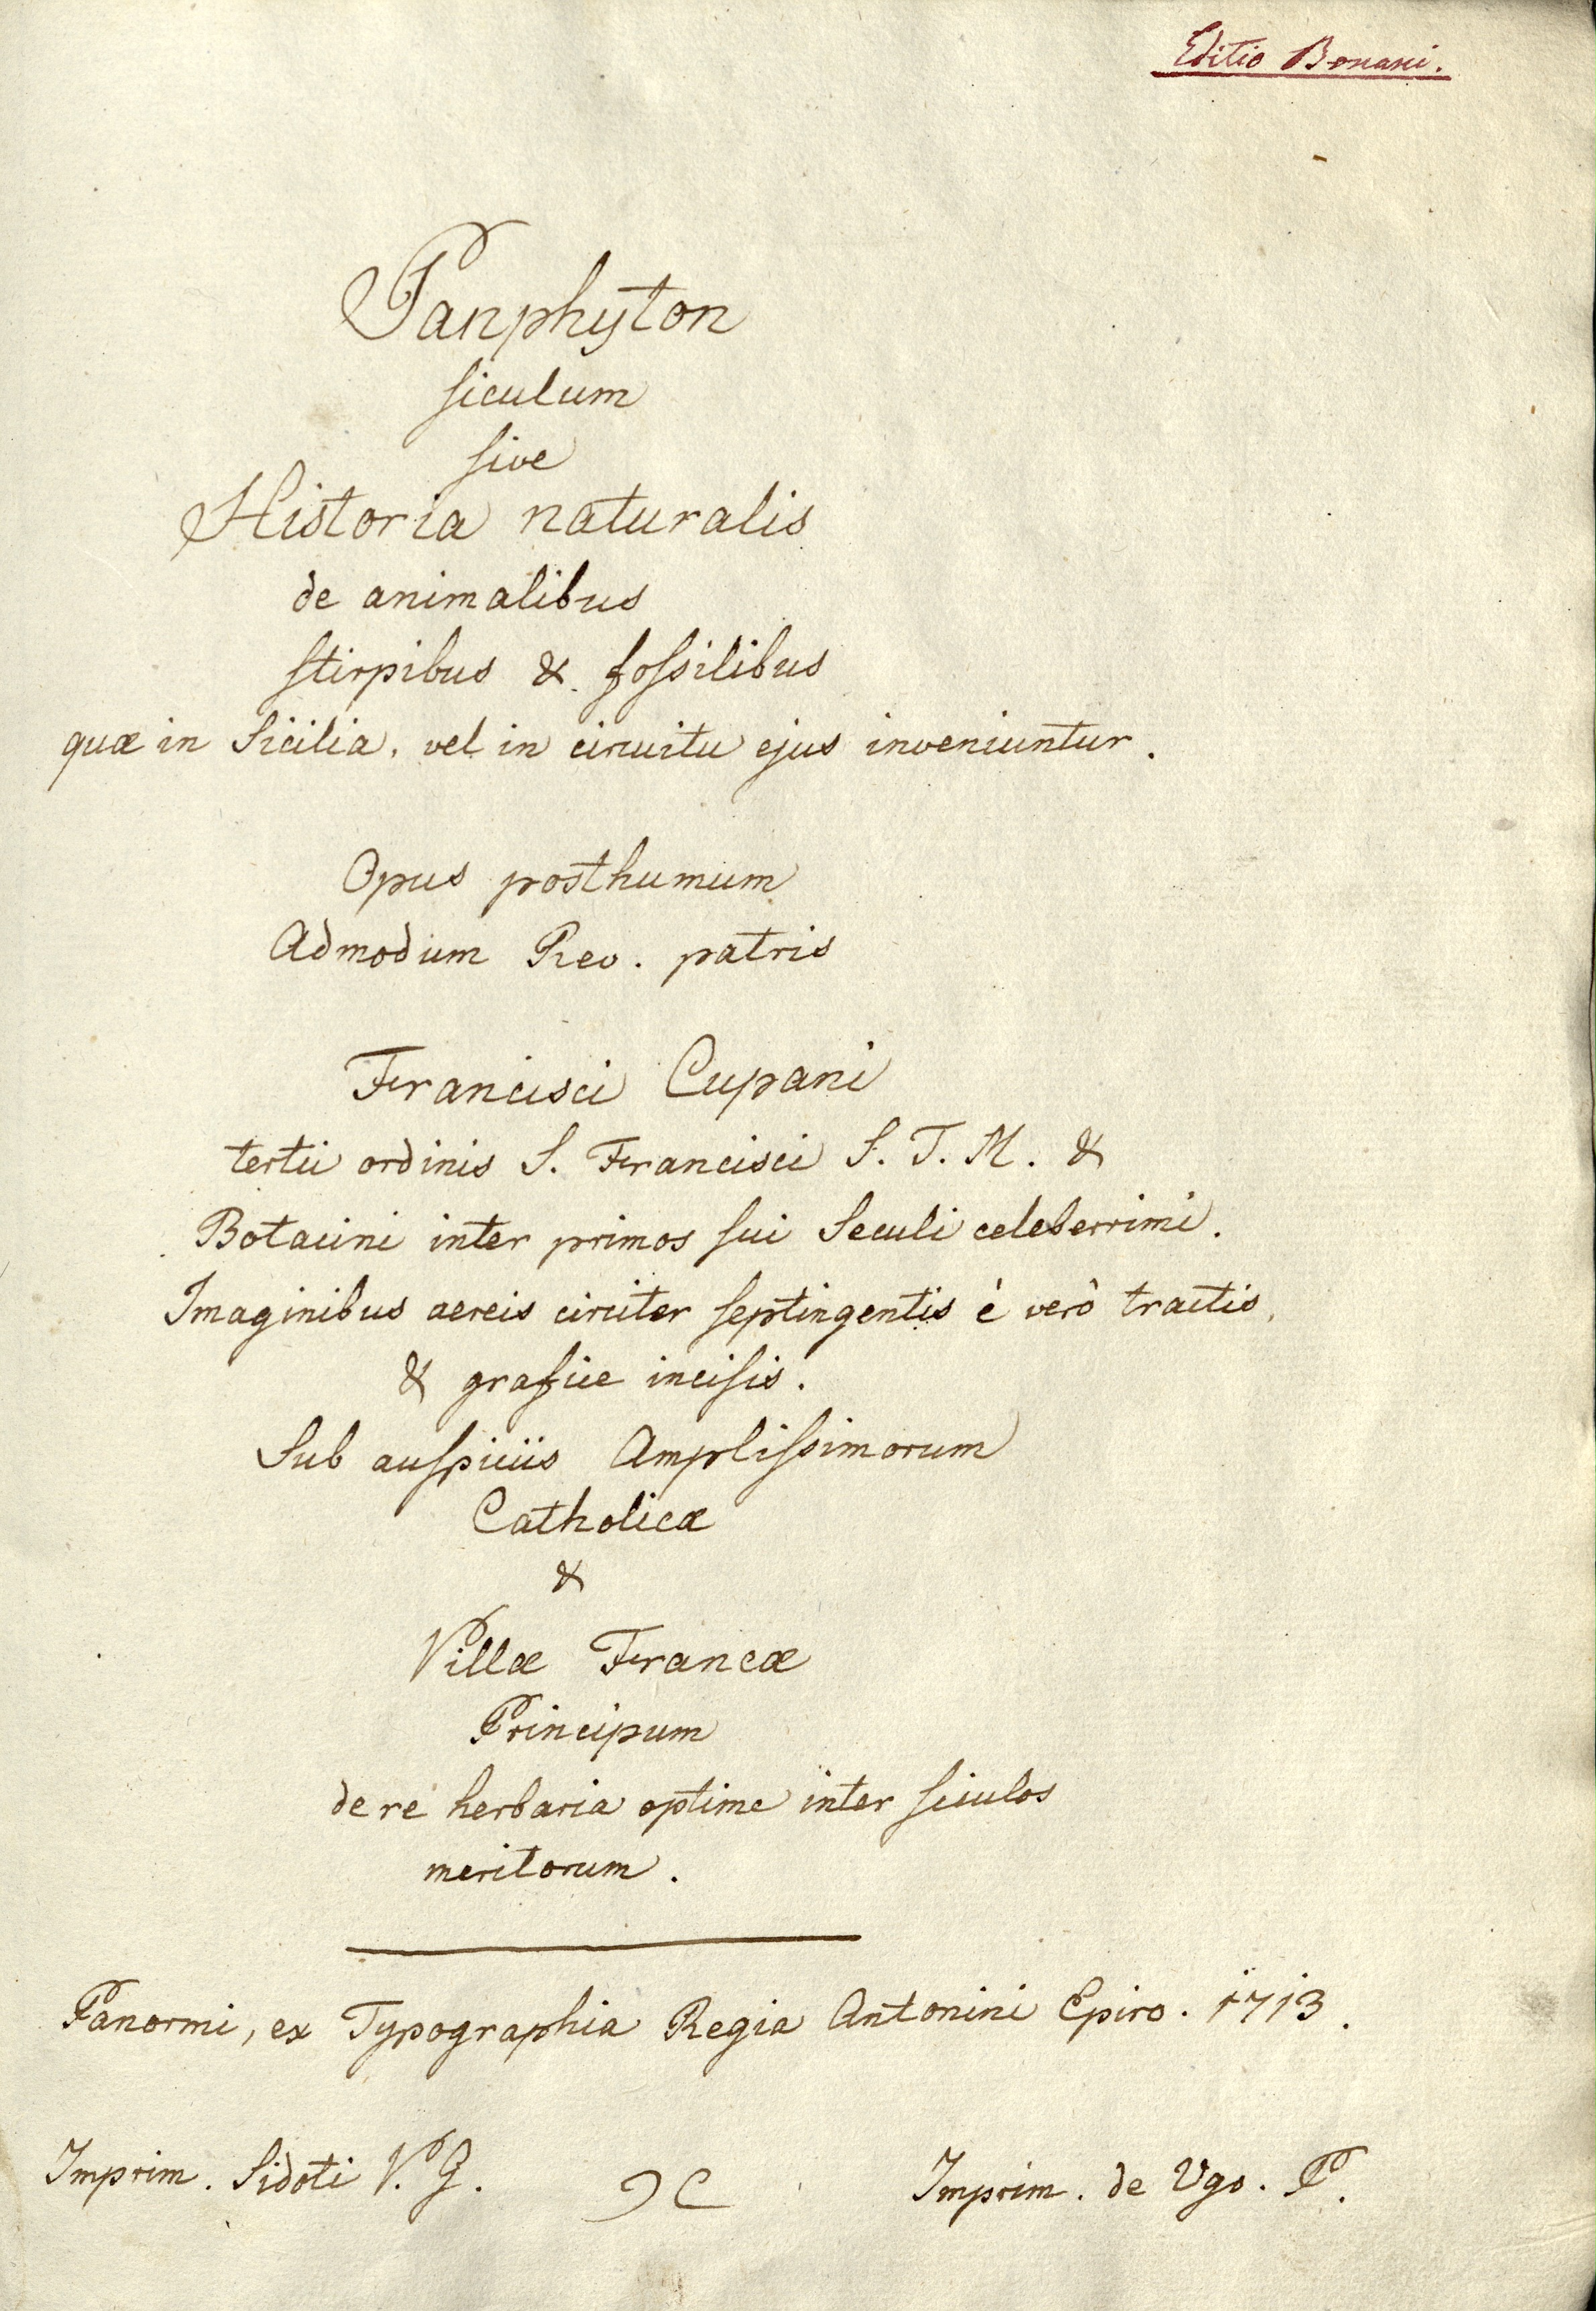 Editio Bonani.
Panphyton
siculum
sive
Historia naturalis
de animalibus
stirpibus & fossilibus
quæ in Sicilia, vel in circuitu ejus inveniuntur.
Opus posthumum
Admodum Rev. patris
Francisci Cupani
tertii ordinis S. Francisci S. T. M. &
Botacini inter primos sui Seculi celeberrimi.
Imaginibus aereis circiter septingentis è verò tractis,
& grafice incisis.
Sub auspiciis Amplissimorum
Catholicæ
&
Villæ Francæ
Principum
de re herbaria optime inter siculos
meritorum.
Panormi, ex Typographia Regia Antonini Epiro. 1713.
Imprim. Sidoti V. G.
Imprim. de Ugo. P.